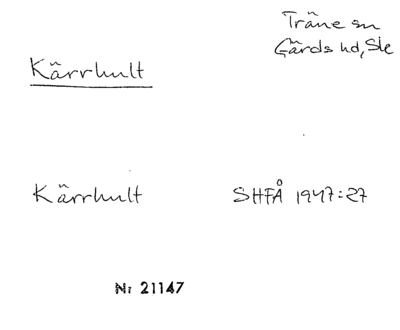 Träne sn
Gärds hd, Sle
Kärrhult
Kärrhult SHFÅ 1947:27
Nr 21147